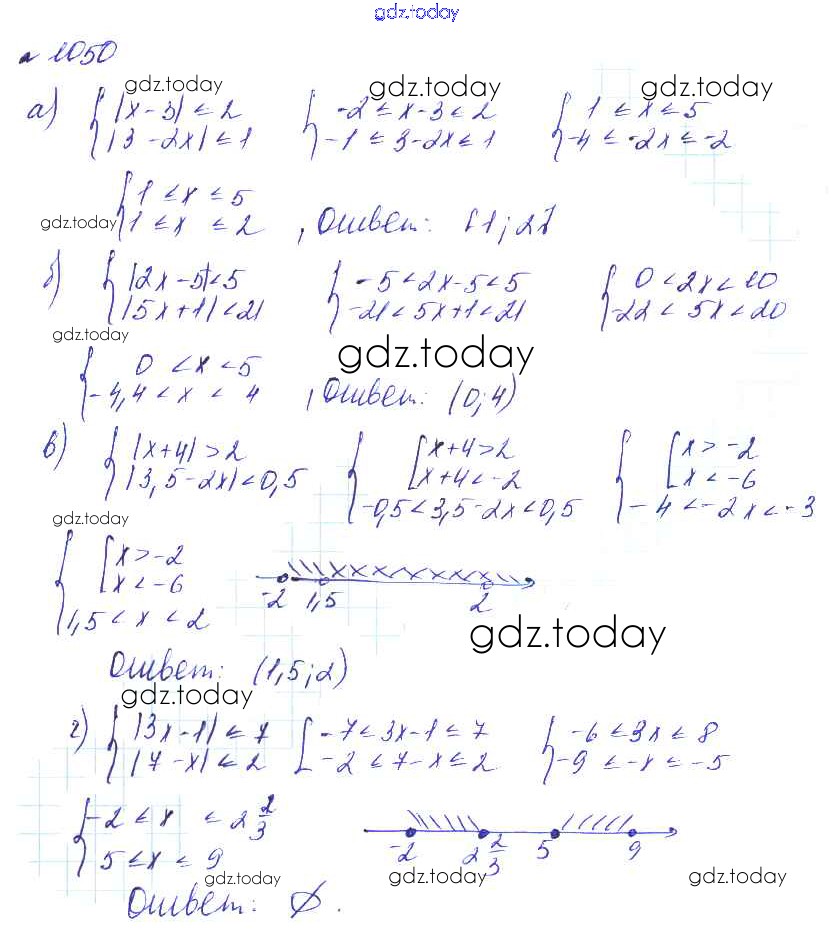 gdz.today
№ 1050
gdz.today gdz.today gdz.today
а) { |x-3| ≤ 2 { -2 ≤ x-3 ≤ 2 { 1 ≤ x ≤ 5
|3-2x| ≤ 1 -1 ≤ 3-2x ≤ 1 -4 ≤ -2x ≤ -2
{ 1 ≤ x ≤ 5
gdz.today 1 ≤ x ≤ 2 , Ответ: [1; 2]
б) { |2x-5| < 5 { -5 < 2x-5 < 5 { 0 < 2x < 10
|5x+1| < 21 -21 < 5x+1 < 21 -22 < 5x < 20
gdz.today
gdz.today
{ 0 < x < 5
-4,4 < x < 4 , Ответ: (0; 4)
в) { |x+4| > 2 { [ x+4 > 2 { [ x > -2
|3,5-2x| < 0,5 x+4 < -2 x < -6
-0,5 < 3,5-2x < 0,5 -4 < -2x < -3
gdz.today
{ [ x > -2
x < -6
1,5 < x < 2 -2 1,5 2
gdz.today
Ответ: (1,5; 2)
gdz.today
г) { |3x-1| ≤ 7 [ -7 ≤ 3x-1 ≤ 7 { -6 ≤ 3x ≤ 8
|7-x| ≤ 2 -2 ≤ 7-x ≤ 2 -9 ≤ -x ≤ -5
{ -2 ≤ x ≤ 2 2/3
5 ≤ x ≤ 9 -2 2 2/3 5 9
gdz.today gdz.today gdz.today
Ответ: ∅.